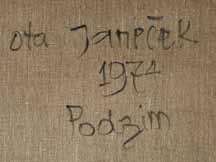 ota Janeček
1974
Podzim